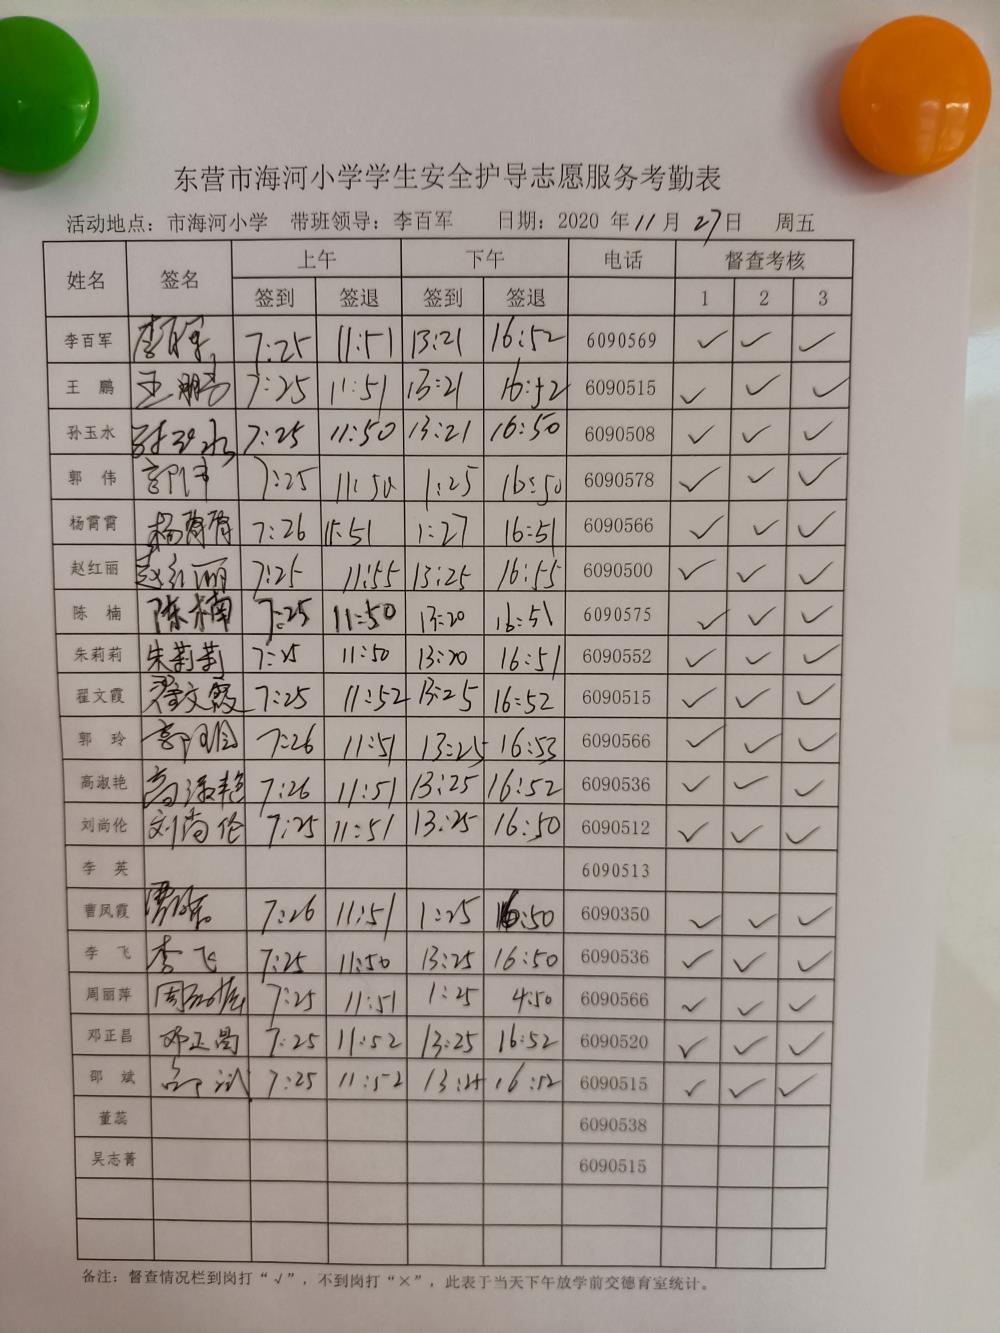 东营市海河小学学生安全护导志愿服务考勤表
活动地点：市海河小学 带班领导：李百军 日期：2020 年 11 月 27 日 周五
姓名 签名 上午 下午 电话 督查考核
签到 签退 签到 签退 1 2 3
李百军 李百军 7:25 11:51 13:21 16:52 6090569 ✓ ✓ ✓
王 鹏 王鹏 7:25 11:51 13:21 16:52 6090515 ✓ ✓ ✓
孙玉水 孙玉水 7:25 11:50 13:21 16:50 6090508 ✓ ✓ ✓
郭 伟 郭伟 7:25 11:50 1:25 16:50 6090578 ✓ ✓ ✓
杨霄霄 杨霄霄 7:26 11:51 1:27 16:51 6090566 ✓ ✓ ✓
赵红丽 赵红丽 7:25 11:55 13:25 16:55 6090500 ✓ ✓ ✓
陈 楠 陈楠 7:25 11:50 13:20 16:51 6090575 ✓ ✓ ✓
朱莉莉 朱莉莉 7:25 11:50 13:20 16:51 6090552 ✓ ✓ ✓
翟文霞 翟文霞 7:25 11:52 13:25 16:52 6090515 ✓ ✓ ✓
郭 玲 郭玲 7:26 11:51 13:25 16:53 6090566 ✓ ✓ ✓
高淑艳 高淑艳 7:26 11:51 13:25 16:52 6090536 ✓ ✓ ✓
刘尚伦 刘尚伦 7:25 11:51 13:25 16:50 6090512 ✓ ✓ ✓
李 英 6090513
曹凤霞 7:26 11:51 1:25 16:50 6090350 ✓ ✓ ✓
李 飞 李飞 7:25 11:50 13:25 16:50 6090536 ✓ ✓ ✓
周丽萍 周丽萍 7:25 11:51 1:25 4:50 6090566 ✓ ✓ ✓
邓正昌 邓正昌 7:25 11:52 13:25 16:52 6090520 ✓ ✓ ✓
邵 斌 邵斌 7:25 11:52 13:25 16:52 6090515 ✓ ✓ ✓
董蕊 6090538
吴志菁 6090515
备注：督查情况栏到岗打“√”，不到岗打“×”，此表于当天下午放学前交德育室统计。